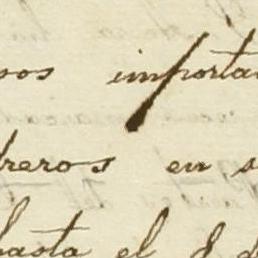 sos importa
breros en s
hasta el 8 d